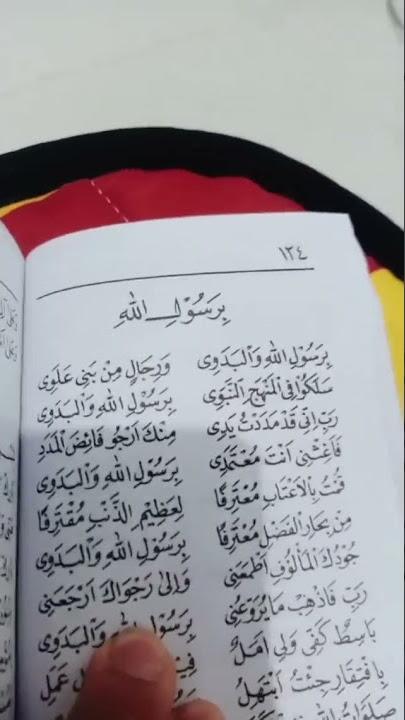 ١٣٤
بِرَسُوْلِ اللهِ
بِرَسُوْلِ اللهِ وَالْبَدَوِى وَرِجَالٍ مِنْ بَنِى عَلَوِى
سَلَكُوْا فِى الْمَنْهَجِ النَّبَوِى بِرَسُوْلِ اللهِ وَالْبَدَوِى
رَبِّ اِنِّى قَدْ مَدَدْتُ يَدِى مِنْكَ اَرْجُوْ فَائِضَ الْمَدَدِ
فَاَغِثْنِى اَنْتَ مُعْتَمَدِى بِرَسُوْلِ اللهِ وَالْبَدَوِى
قُمْتُ بِالْاَعْتَابِ مُعْتَرِفًا لِعَظِيْمِ الذَّنْبِ مُقْتَرِفًا
مِنْ بِحَارِ الْفَضْلِ مُغْتَرِفًا بِرَسُوْلِ اللهِ وَالْبَدَوِى
جُوْدُكَ الْمَأْلُوْفُ اَطْمَعَنِى وَاِلَى رَجْوَاكَ اَرْجَعَنِى
رَبِّ فَاذْهِبْ مَا يُرَوِّعُنِى بِرَسُوْلِ اللهِ وَالْبَدَوِى
بَاسِطٌ كَفِّى وَلِى اَمَلٌ عَمَلِ
بِافْتِقَارٍ جِئْتُ اَبْتَهِلُ
صَلَوَاتُ اللهِ